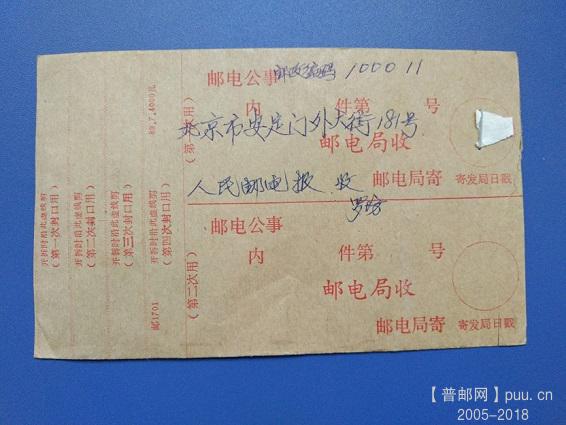 邮电公事 邮政编码 100011
内 件第 号
北京市安定门外大街181号
邮电局收
人民邮电报 收
邮电局寄 寄发局日戳
(第一次用)
邮电公事
内 件第 号
邮电局收
邮电局寄 寄发局日戳
(第二次用)
开拆时沿此虚线剪
(第一次封口用)
开拆时沿此虚线剪
(第二次封口用)
开拆时沿此虚线剪
(第三次封口用)
开拆时沿此虚线剪
(第四次封口用)
邮1701
【普邮网】puu.cn
2005-2018